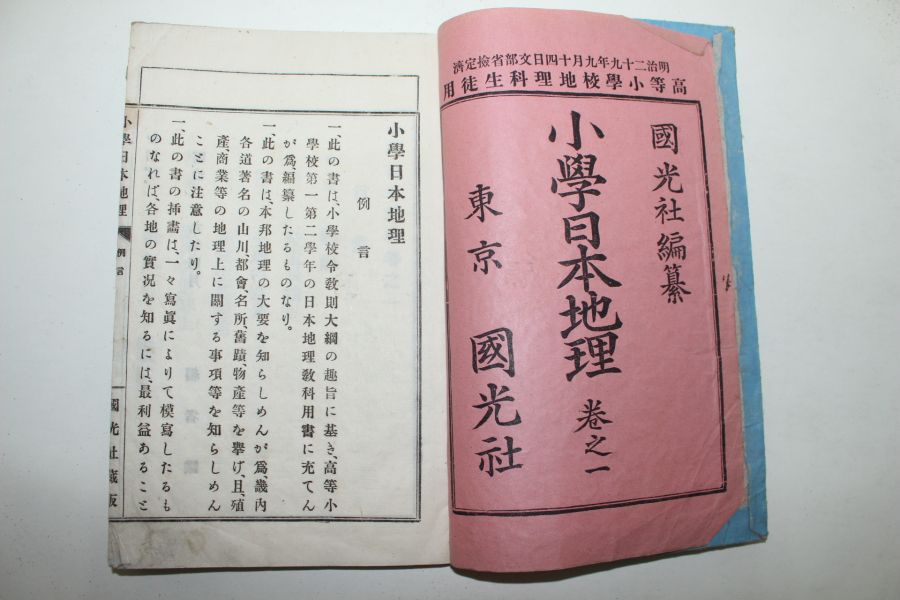 明治二十九年九月十四日文部省檢定濟
高等小學校地理科生徒用
國光社編纂
小學日本地理 卷之一
東京 國光社
小學日本地理
例言
一、此の書は、小學校令敎則大綱の趣旨に基き、高等小
學校第一第二學年の日本地理敎科用書に充てん
が爲編纂したるものなり。
一、此の書は、本邦地理の大要を知らしめんが爲、畿內
各道著名の山川、都會、名所、舊蹟、物產等を擧げ、且、殖
產、商業等の地理上に關する事項等を知らしめん
ことに注意したり。
一、此の書の挿畫は、一々寫眞によりて模寫したるも
のなれば、各地の實況を知るには、最利益あること
小學日本地理
例言
國光社藏版